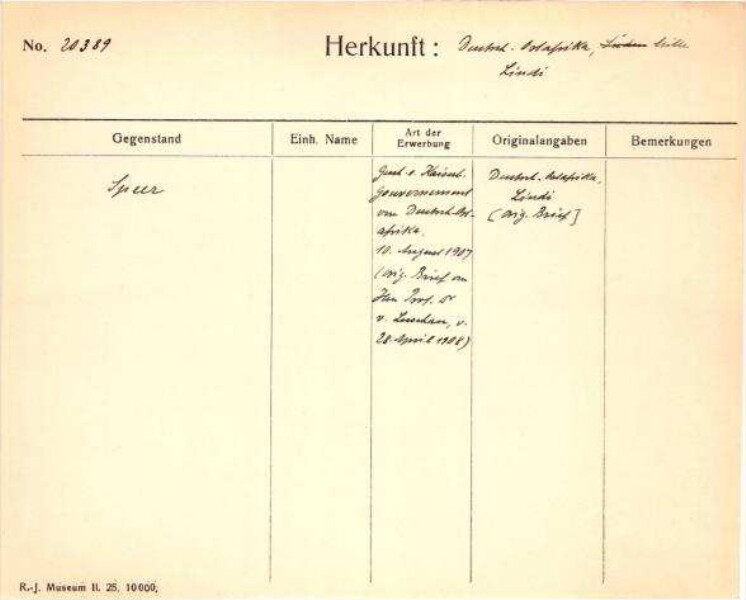 No. 20389
Herkunft: Deutsch. Ostafrika,
Lindi
Gegenstand
Einh. Name
Art der
Erwerbung
Originalangaben
Bemerkungen
Speer
Gesch. v. Kaiserl.
Gouvernement
von Deutsch Ost-
afrika.
10. August 1907
(Orig. Brief an
Hrn Prof. Dr
v. Luschan, v.
28. April 1908)
Deutsch. Ostafrika,
Lindi
(Orig. Brief]
R.-J. Museum II. 25. 10000.